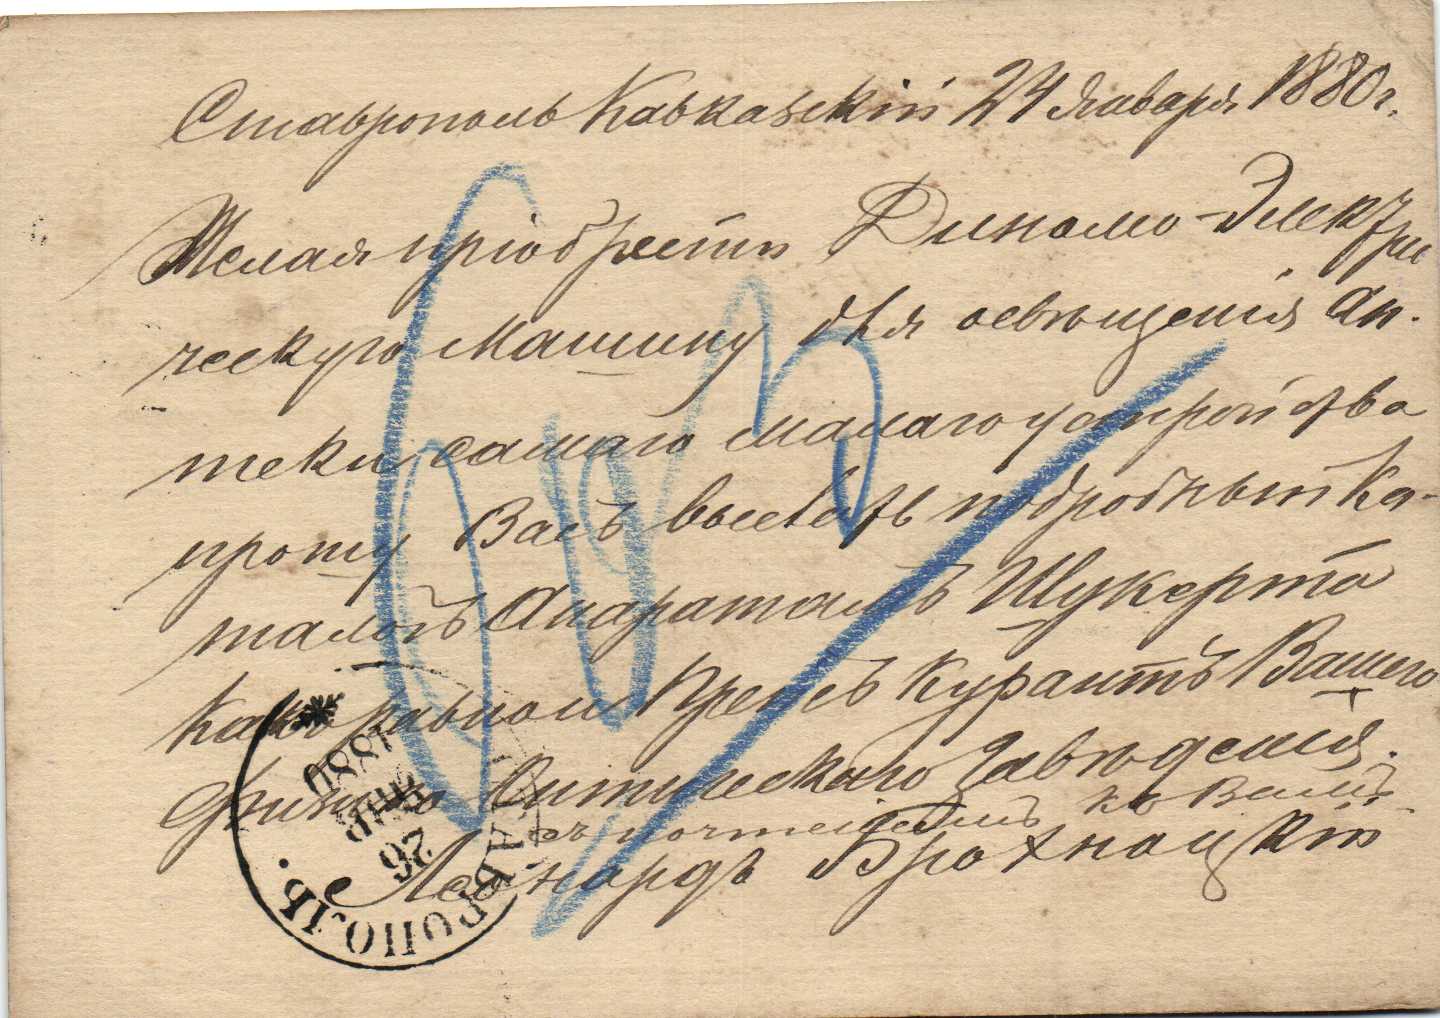 Ставрополь Кавказскій 24 Января 1880 г.
Желая пріобрести Динамо-Электри
ческую Машину для освѣщенія Ап-
теки самаго малаго устройства
прошу Васъ выслать подробный Ка-
талогъ Апаратамъ Шукерта
Прейсъ Курантъ Вашего
Оптическаго Заведенія.
съ почтеніемъ къ Вамъ
Леонардъ Брохнацкій
СТАВРОПОЛЬ.
26
ЯНВ
1880